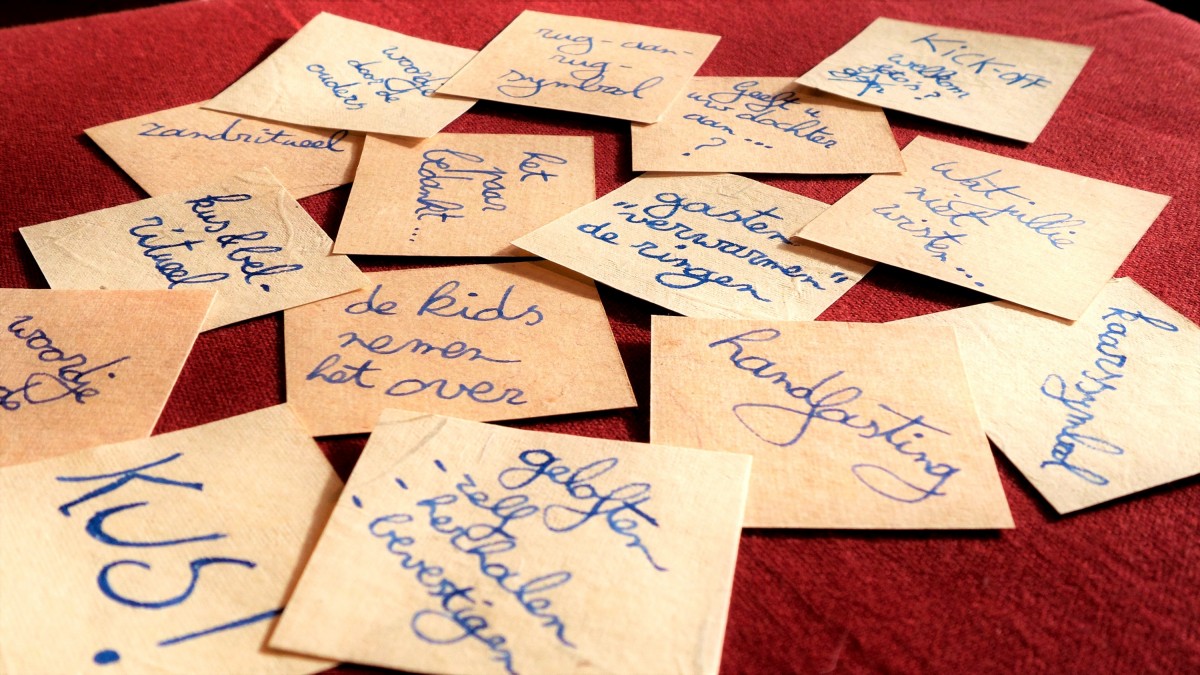 woordje
door de
ouders
rug-aan-
rug-
symbool
KICK-OFF
welkom
foto's?
zandritueel
Geeft u
uw dochter
aan...
?
het
paar
bedankt...
wat jullie
niet
wisten...
kus & bel.
ritueel
gasten
"verwarmen"
de ringen
woordje
de kids
nemen
het over
handfasting
kaarssymbool
KUS!
geloften
- zelf
- herhalen
- bevestigen